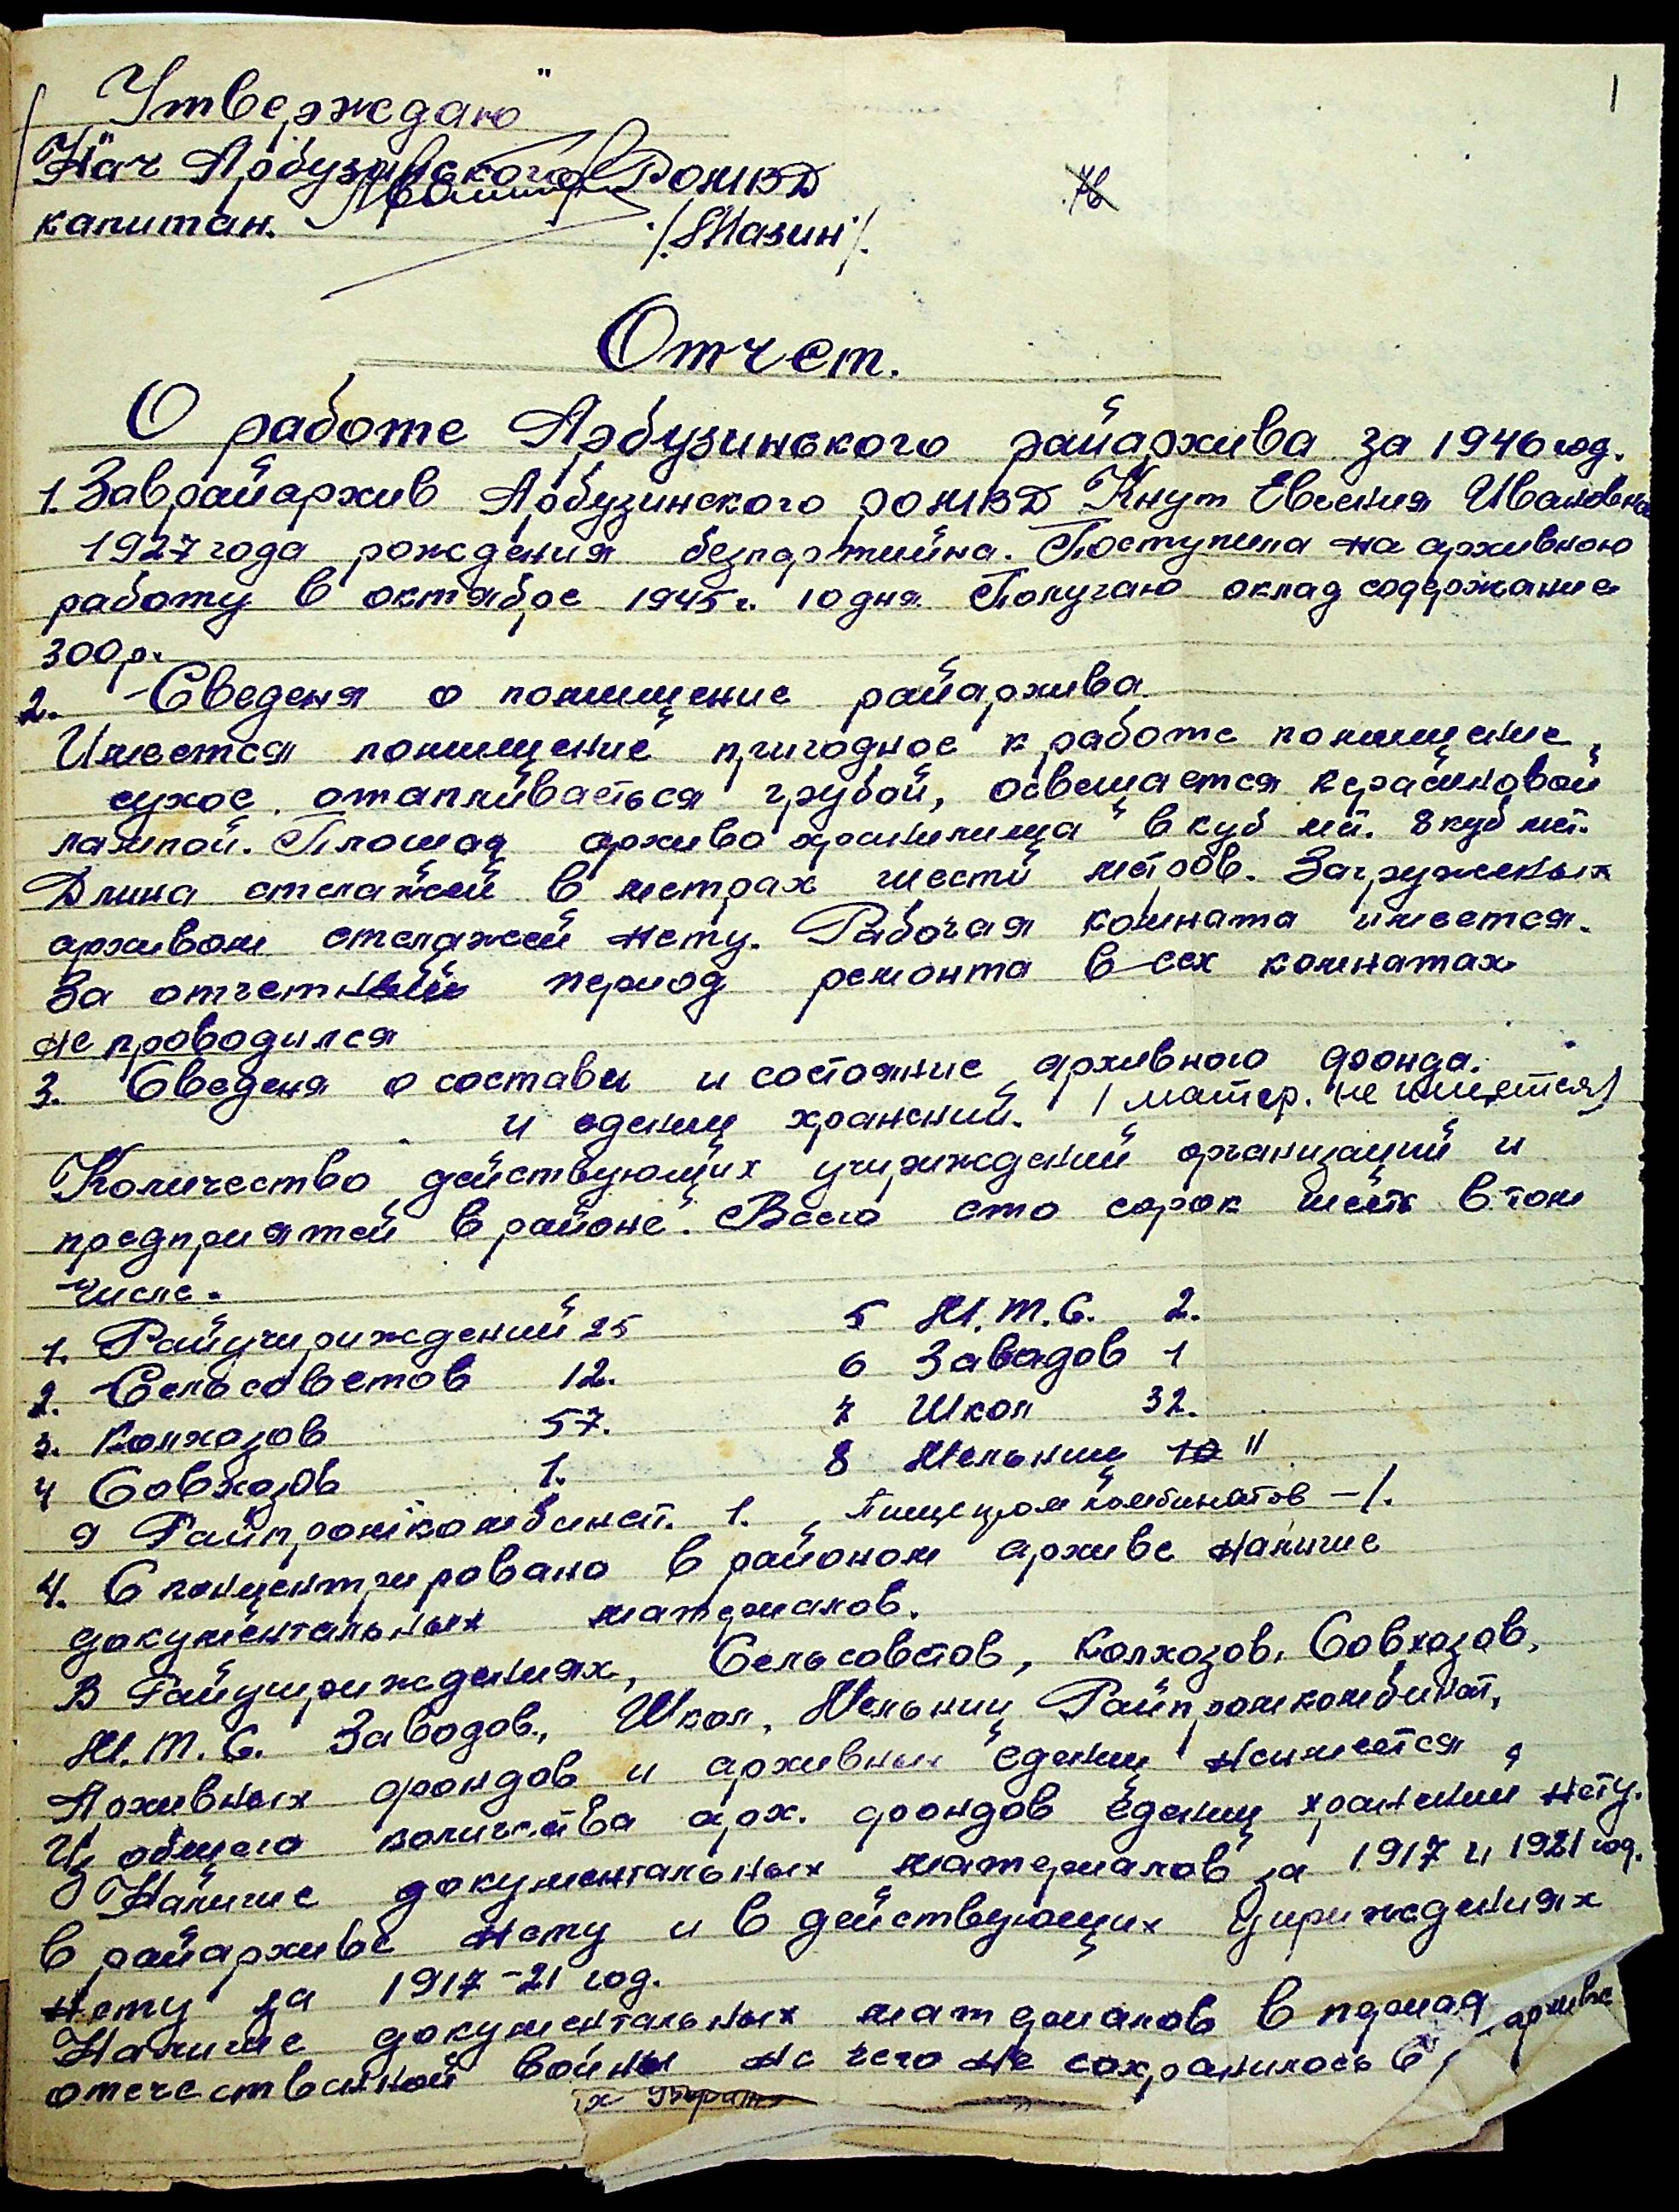 „Утверждаю"
1
Нач Арбузинського РОМВД
капитан. /Мазин/.
Отчет.
О работе Арбузинького райархива за 1946 год.
1. Заврайархив Арбузинского РОМВД Кнут Евгения Ивановна
1927 года рождения безпартийна. Поступила на архивною
работу в октябре 1945 г. 10 дня. Получаю оклад содержание
300 р.
2. - Сведеня о помищение райархива.
Имеется помищение пригодное к работе помищение
сухое, отапливаеться грубой, освещается керасиновой
лампой. Площад архивохранилища в куб мт. 8 куб мт.
Длина стелажей в метрах шести метров. Загружených
архивом стелажей нету. Рабочая комната имеется.
За отчетный период ремонта в сех комнатах
не проводился
3. Сведеня о составы и состояние архивного фонда.
и едениц хранений. / матер. не имеется)
Количество действующих учириждений организаций и
предприятей в районе. Всего сто сорок шесть в том
числе.
1. Райучириждений 25 5 М.Т.С. 2.
2. Сельсоветов 12. 6 Заводов 1
3. Колхозов 57. 7 Школ 32.
4 Совхозов 1. 8 Мельниц 10 11
9 Райпромкомбинат. 1. Пищепромкомбинатов – 1.
4. Сконцентрировано в районом архиве наличие
документальных материалов.
В Райучириждениях, Сельсоветов, Колхозов, Совхозов,
М.Т.С. Заводов, Школ, Мельниц Райпромкомбинат,
Архивных фондов и архивных едениц неимеется,
Из общего количества арх. фондов едениц хранений нету.
Наличие документальных материалов за 1917 и 1921 год.
в райархиве нету и в действующих учириждениях
нету за 1917-21 год.
Наличие документальных материалов в период
отечественной войны не чего не сохранилось в архиве